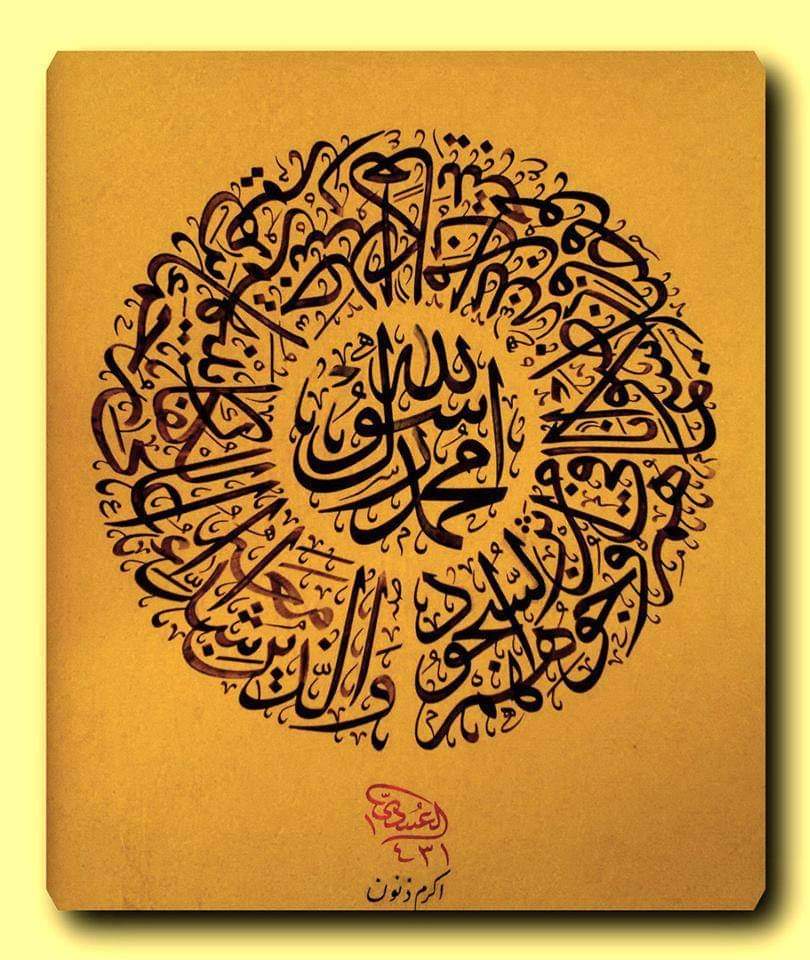 محمد رسول الله
والذين معه أشداء على الكفار رحماء بينهم تراهم ركعا سجدا يبتغون فضلا من الله ورضوانا سيماهم في وجوههم من أثر السجود
١٤٣١
اكرم ذنون